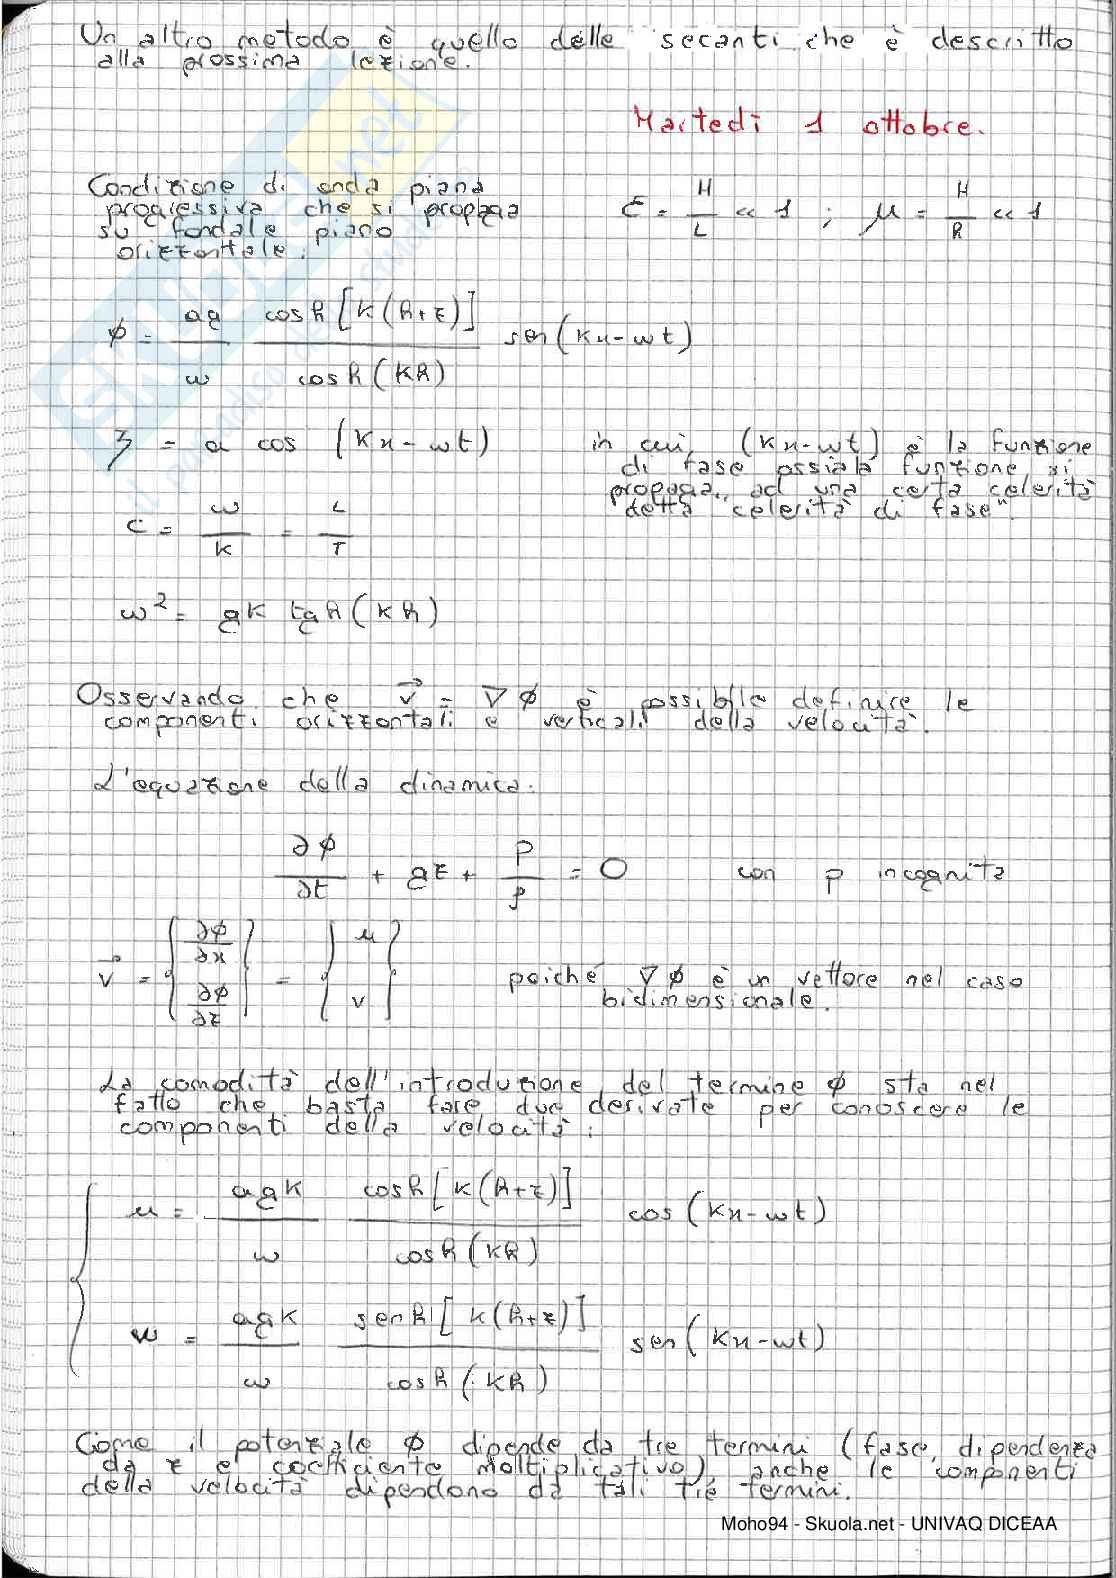 Un altro metodo è quello delle secanti che è descritto
alla prossima lezione.
Martedì 1 ottobre.
Condizione di onda piana
progressiva che si propaga
su fondale piano
orizzontale:
ε = H/L << 1 ; μ = H/h << 1
φ = ag/w cosh[k(h+z)]/cosh(kh) sen(kx-wt)
ζ = a cos (kx-wt)
in cui, (kx-wt) è la funzione
di fase ossia la funzione si
propaga ad una certa celerità
detta "celerità di fase".
c = w/k = L/T
w² = gk tgh(kh)
Osservando che v⃗ = ∇φ è possibile definire le
componenti orizzontali e verticali della velocità.
L'equazione della dinamica:
∂φ/∂t + gz + p/ρ = 0 con p incognita
v⃗ = {∂φ/∂x ∂φ/∂z} = {u v}
poiché ∇φ è un vettore nel caso
bidimensionale.
La comodità dell'introduzione del termine φ sta nel
fatto che basta fare due derivate per conoscere le
componenti della velocità:
u = agk/w cosh[k(h+z)]/cosh(kh) cos(kx-wt)
w = agk/w senh[k(h+z)]/cosh(kh) sen(kx-wt)
Come il potenziale φ dipende da tre termini (fase, dipendenza
da z e coefficiente moltiplicativo), anche le componenti
della velocità dipendono da tali tre termini.
Moho94 - Skuola.net - UNIVAQ DICEAA